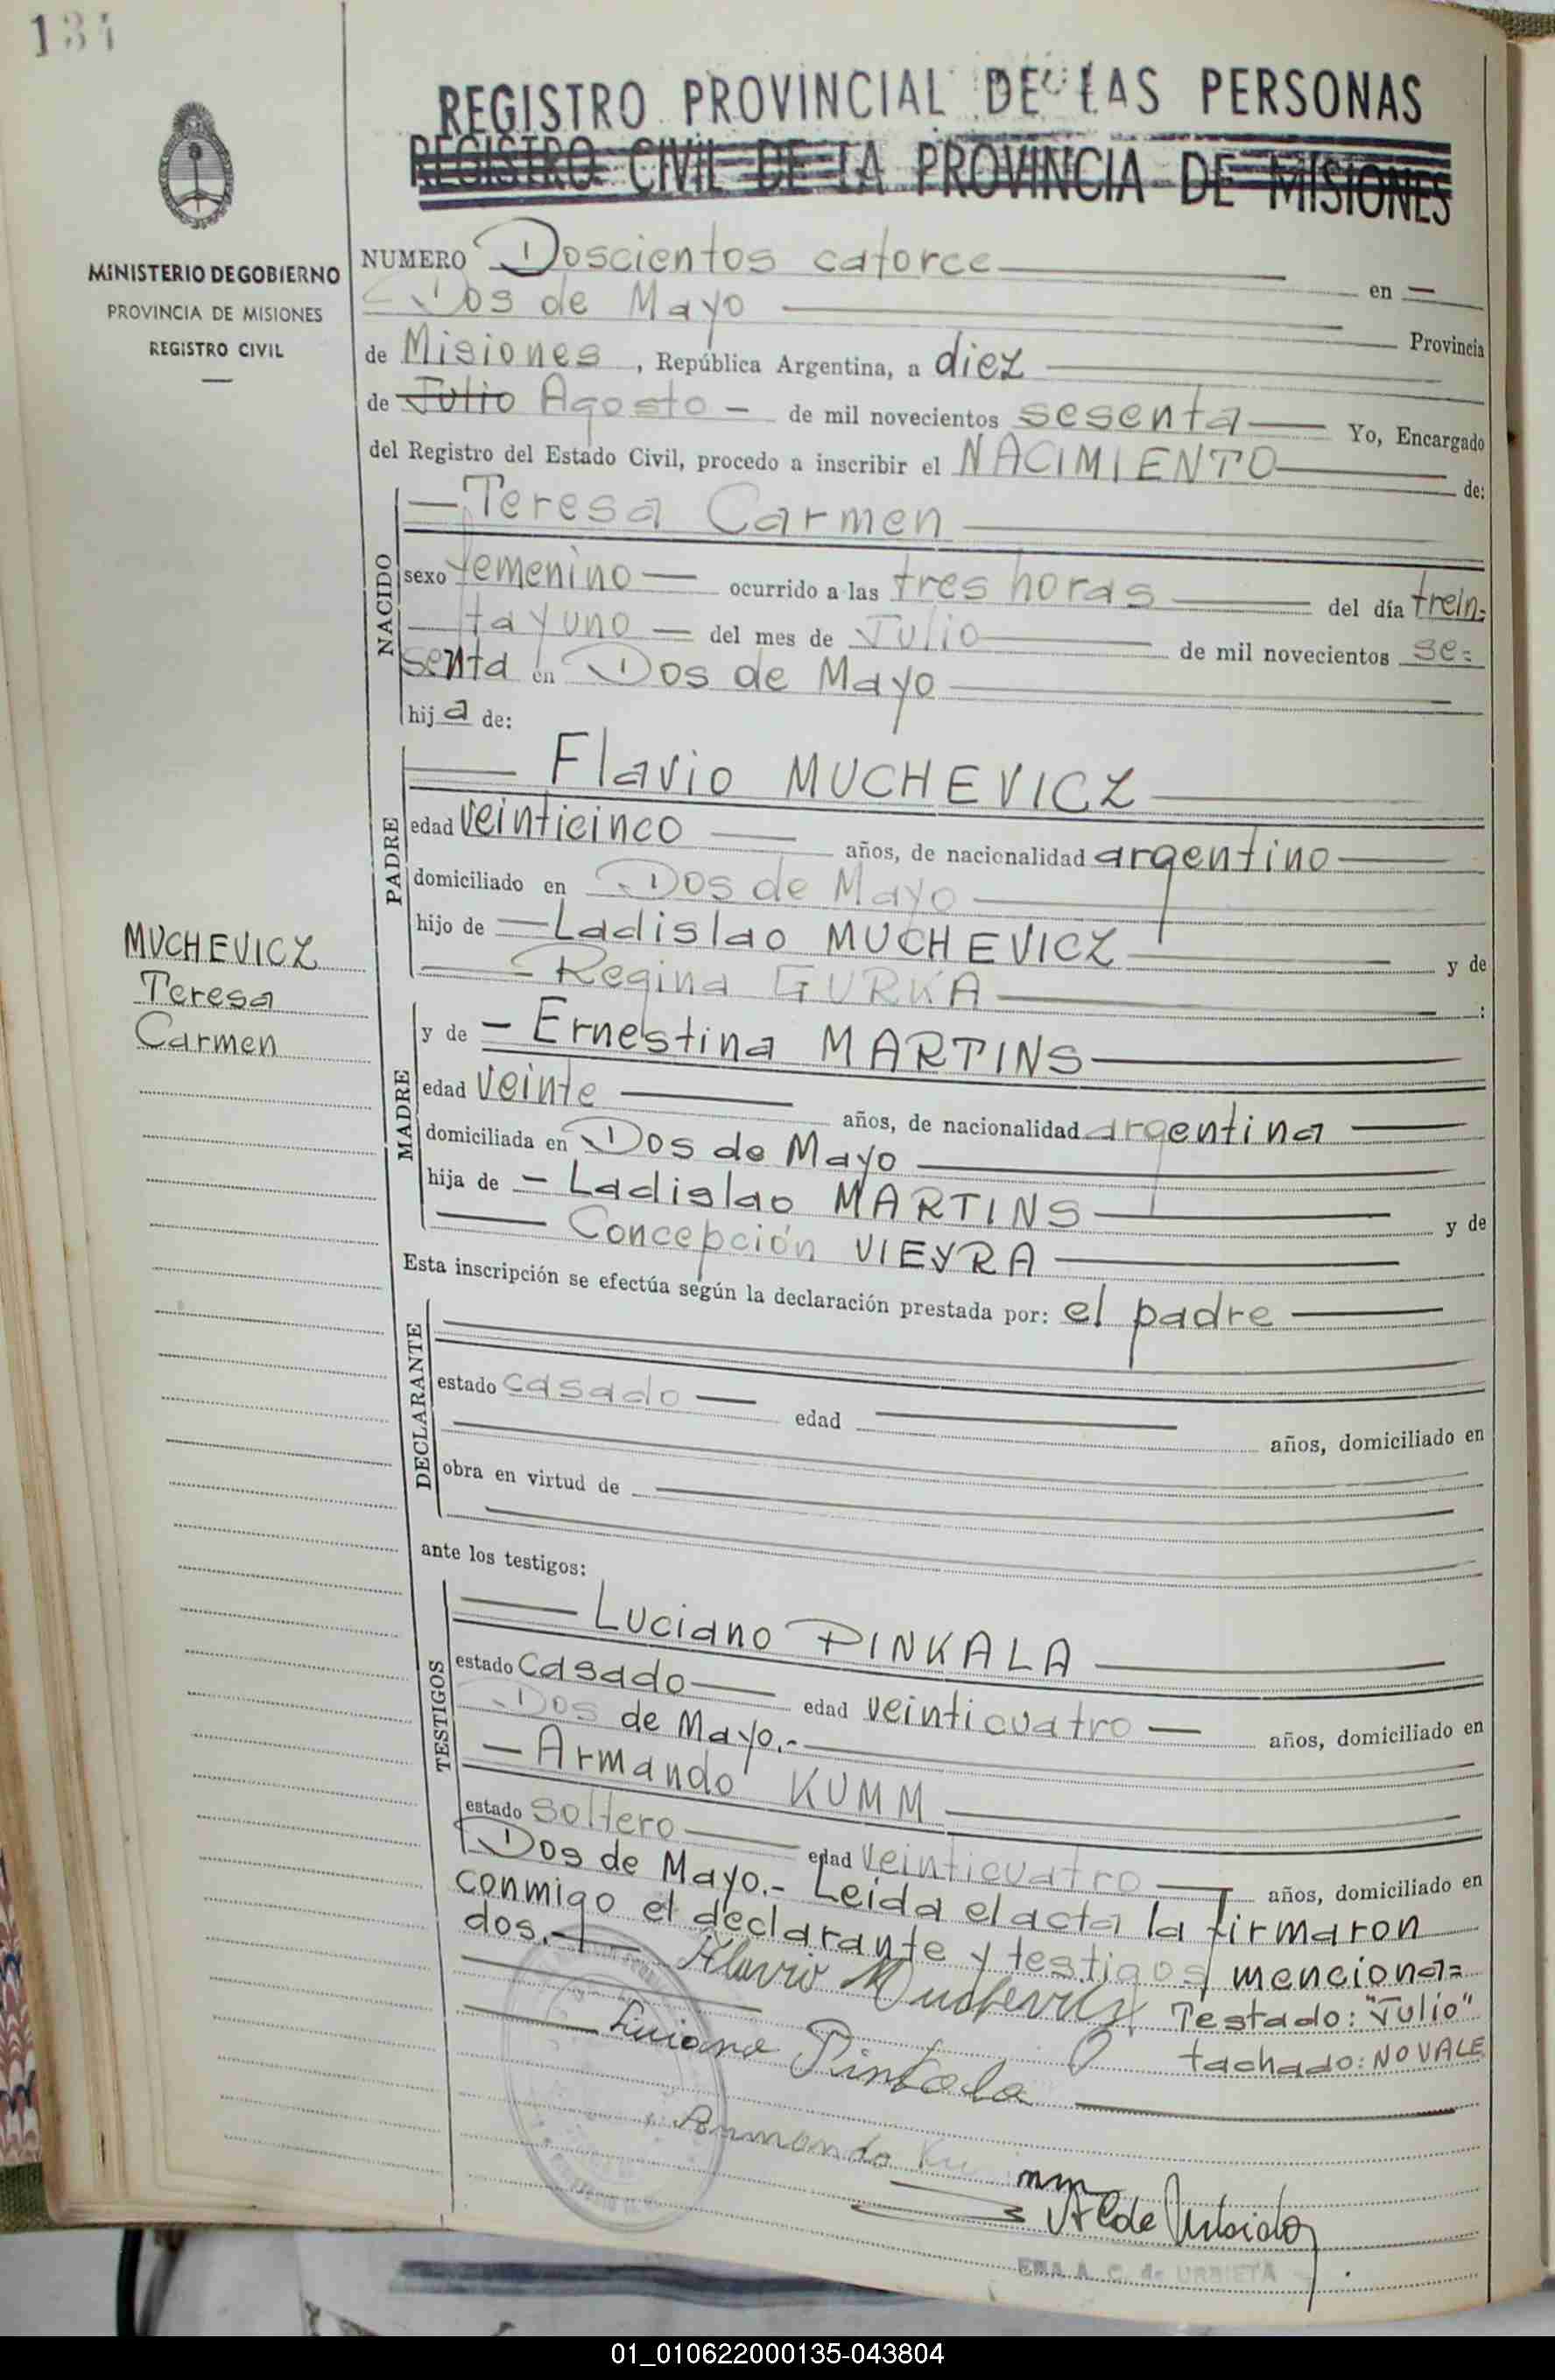 134
REGISTRO PROVINCIAL DE LAS PERSONAS
REGISTRO CIVIL DE LA PROVINCIA DE MISIONES
MINISTERIO DE GOBIERNO
PROVINCIA DE MISIONES
REGISTRO CIVIL
NUMERO Doscientos catorce en
Dos de Mayo Provincia
de Misiones, República Argentina, a diez
de Julio Agosto - de mil novecientos sesenta Yo, Encargado
del Registro del Estado Civil, procedo a inscribir el NACIMIENTO de:
NACIDO
Teresa Carmen
sexo femenino ocurrido a las tres horas del día trein=
ta y uno del mes de Julio de mil novecientos se=
senta en Dos de Mayo
hija de:
PADRE
Flavio MUCHEVICZ
edad veinticinco años, de nacionalidad argentino
domiciliado en Dos de Mayo
hijo de Ladislao MUCHEVICZ y de
Regina GURKA :
MUCHEVICZ
Teresa
Carmen
MADRE
y de Ernestina MARTINS
edad veinte años, de nacionalidad argentina
domiciliada en Dos de Mayo
hija de Ladislao MARTINS y de
Concepción VIEYRA
Esta inscripción se efectúa según la declaración prestada por: el padre
DECLARANTE
estado casado edad años, domiciliado en
obra en virtud de
ante los testigos:
TESTIGOS
Luciano PINKALA
estado casado edad veinticuatro años, domiciliado en
Dos de Mayo.-
Armando KUMM
estado soltero edad veinticuatro años, domiciliado en
Dos de Mayo.- Leida el acta la firmaron
conmigo el declarante y testigos menciona=
dos.-
Flavio Muchevicz Testado: "Julio"
tachado: NO VALE
Luciano Pinkala
Armando Kumm
EMA A. C. de URBIETA
01_010622000135-043804